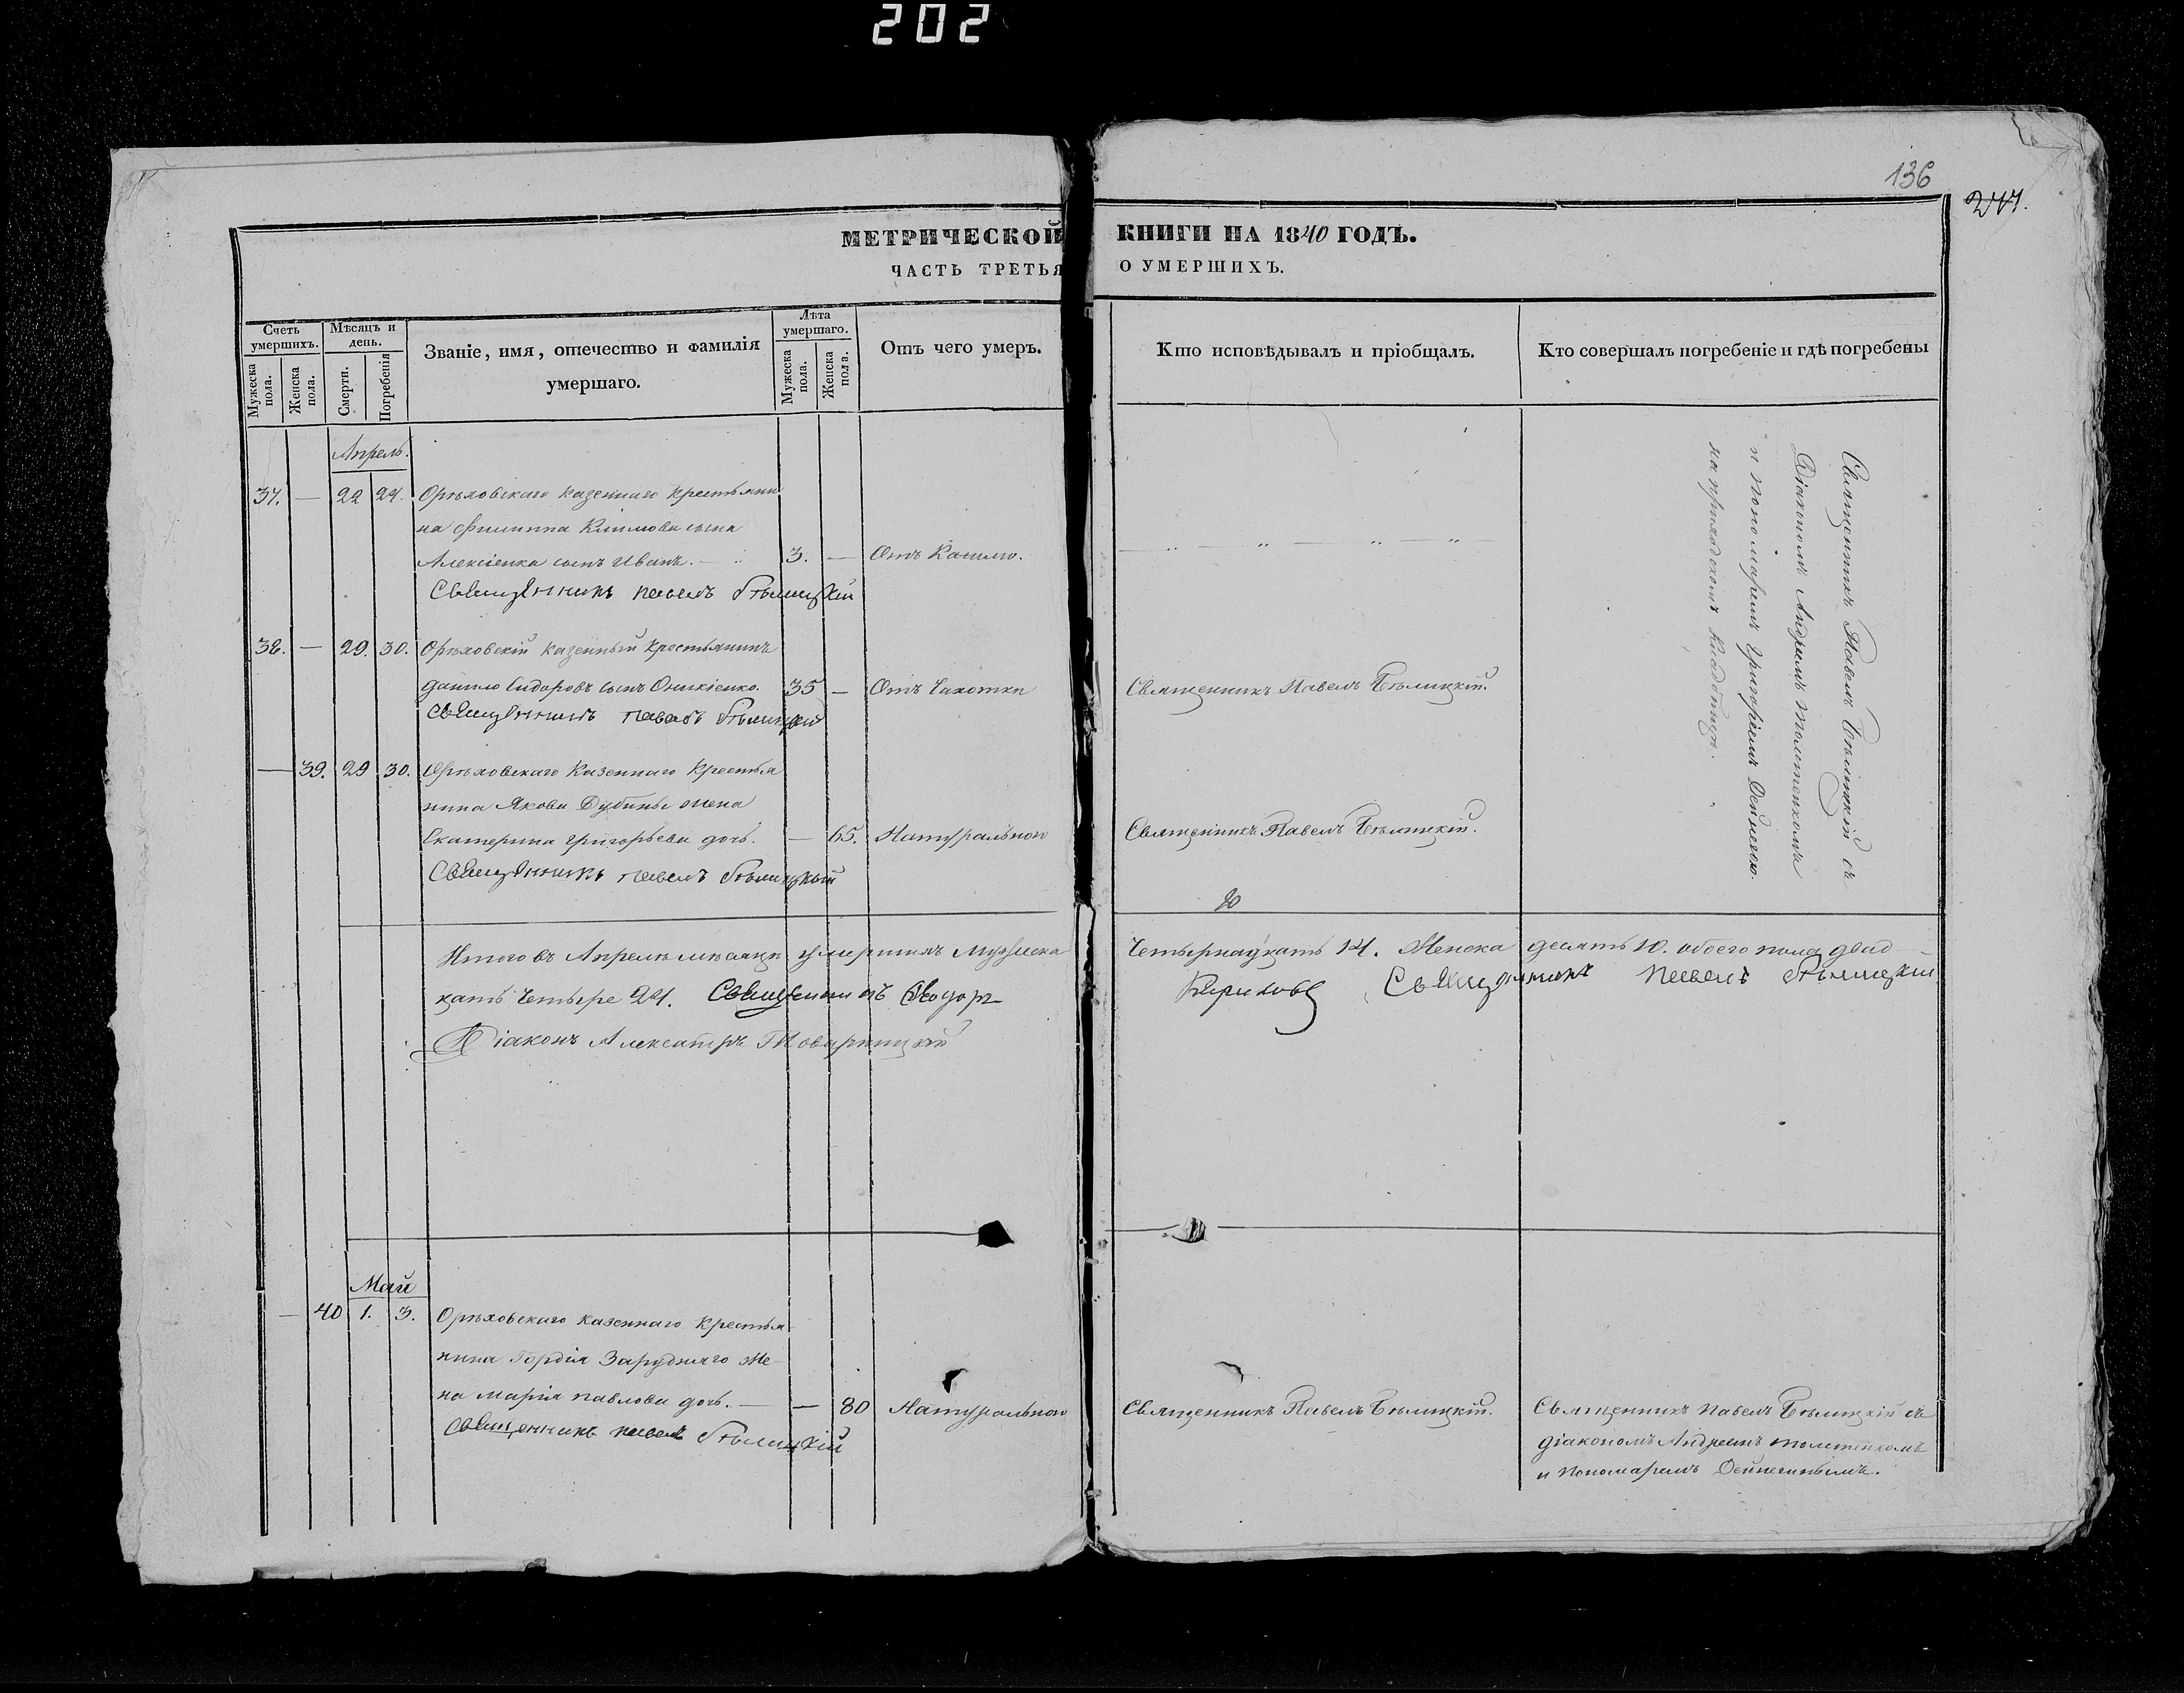 202
136
244.
МЕТРИЧЕСКОЙ КНИГИ НА 1840 ГОДЪ.
ЧАСТЬ ТРЕТЬЯ О УМЕРШИХЪ.
Счетъ умершихъ.
Мужеска пола.
Женска пола.
Мѣсяцъ и день.
Смерти.
Погребенія
Званіе, имя, отечество и фамилія
умершаго.
Лѣта умершаго.
Мужеска пола.
Женска пола.
Отъ чего умеръ.
Кто исповѣдывалъ и пріобщалъ.
Кто совершалъ погребеніе и гдѣ погребены
Апрель.
37. — 22 24. Орѣховскаго казеннаго крестьяни
на Филиппа Климова сына
Алексіенка сынъ Иванъ. — 3. — Отъ Кашлю.
Священникъ Павелъ Бѣлицкій
38. — 29. 30. Орѣховскій казенный крестьянинъ
Данило Сидоровъ сынъ Оникіенко. 35 — Отъ Чахотки Священникъ Павелъ Бѣлицкій.
Священникъ Павелъ Бѣлицкій
— 39. 29 30. Орѣховскаго Казеннаго Крестья
нина Якова Дубины жена
Екатерина Григорьева дочь. — 65. Натуральною Священникъ Павелъ Бѣлицкій.
Священникъ Павелъ Бѣлицкій
Священникъ Павелъ Бѣлицкій съ
Діакономъ Андреемъ
и пономаремъ Григоріемъ
на приходскомъ кладбищѣ.
Итого въ Апрелѣ мѣсяцѣ умершихъ мужеска четырнадцать 14. Женска десять 10. обоего пола двад
цать четыре 24. Священникъ Ѳеодоръ Кириловъ Священникъ Павелъ Бѣлицкій
Діаконъ Александръ
Май
— 40 1. 3. Орѣховскаго казеннаго крестья
нина Гордія Заруднаго же
на Марія Павлова дочь. — — 80 Натуральною Священникъ Павелъ Бѣлицкій.
Священникъ Павелъ Бѣлицкій
Священникъ Павелъ Бѣлицкій съ
діакономъ Андреемъ
и пономаремъ